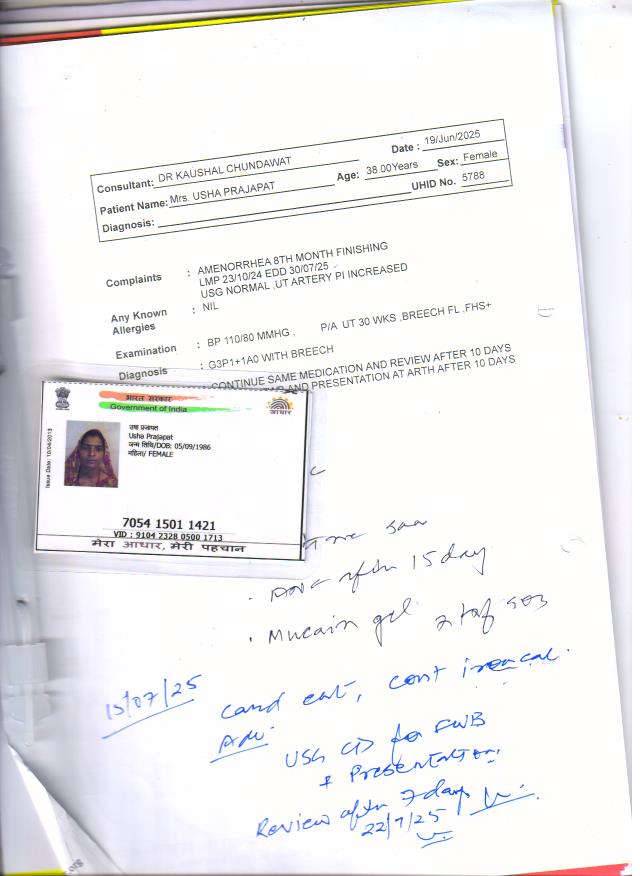 Consultant: DR KAUSHAL CHUNDAWAT Date : 19/Jun/2025
Patient Name: Mrs. USHA PRAJAPAT Age: 38.00Years Sex: Female
Diagnosis: UHID No. 5788
Complaints : AMENORRHEA 8TH MONTH FINISHING
LMP 23/10/24 EDD 30/07/25
USG NORMAL ,UT ARTERY PI INCREASED
Any Known Allergies : NIL
Examination : BP 110/80 MMHG , P/A UT 30 WKS ,BREECH FL ,FHS+
Diagnosis : G3P1+1A0 WITH BREECH
: CONTINUE SAME MEDICATION AND REVIEW AFTER 10 DAYS
AND PRESENTATION AT ARTH AFTER 10 DAYS
भारत सरकार
Government of India
आधार
Issue Date: 10/04/2013
उषा प्रजापत
Usha Prajapat
जन्म तिथि/DOB: 05/09/1986
महिला/ FEMALE
7054 1501 1421
VID : 9104 2328 0500 1713
मेरा आधार, मेरी पहचान
after 15 day
Mucain gel
15/07/25 cont
Adv
USG for FWB
+ Presentation
Review after 7 days
22/7/25